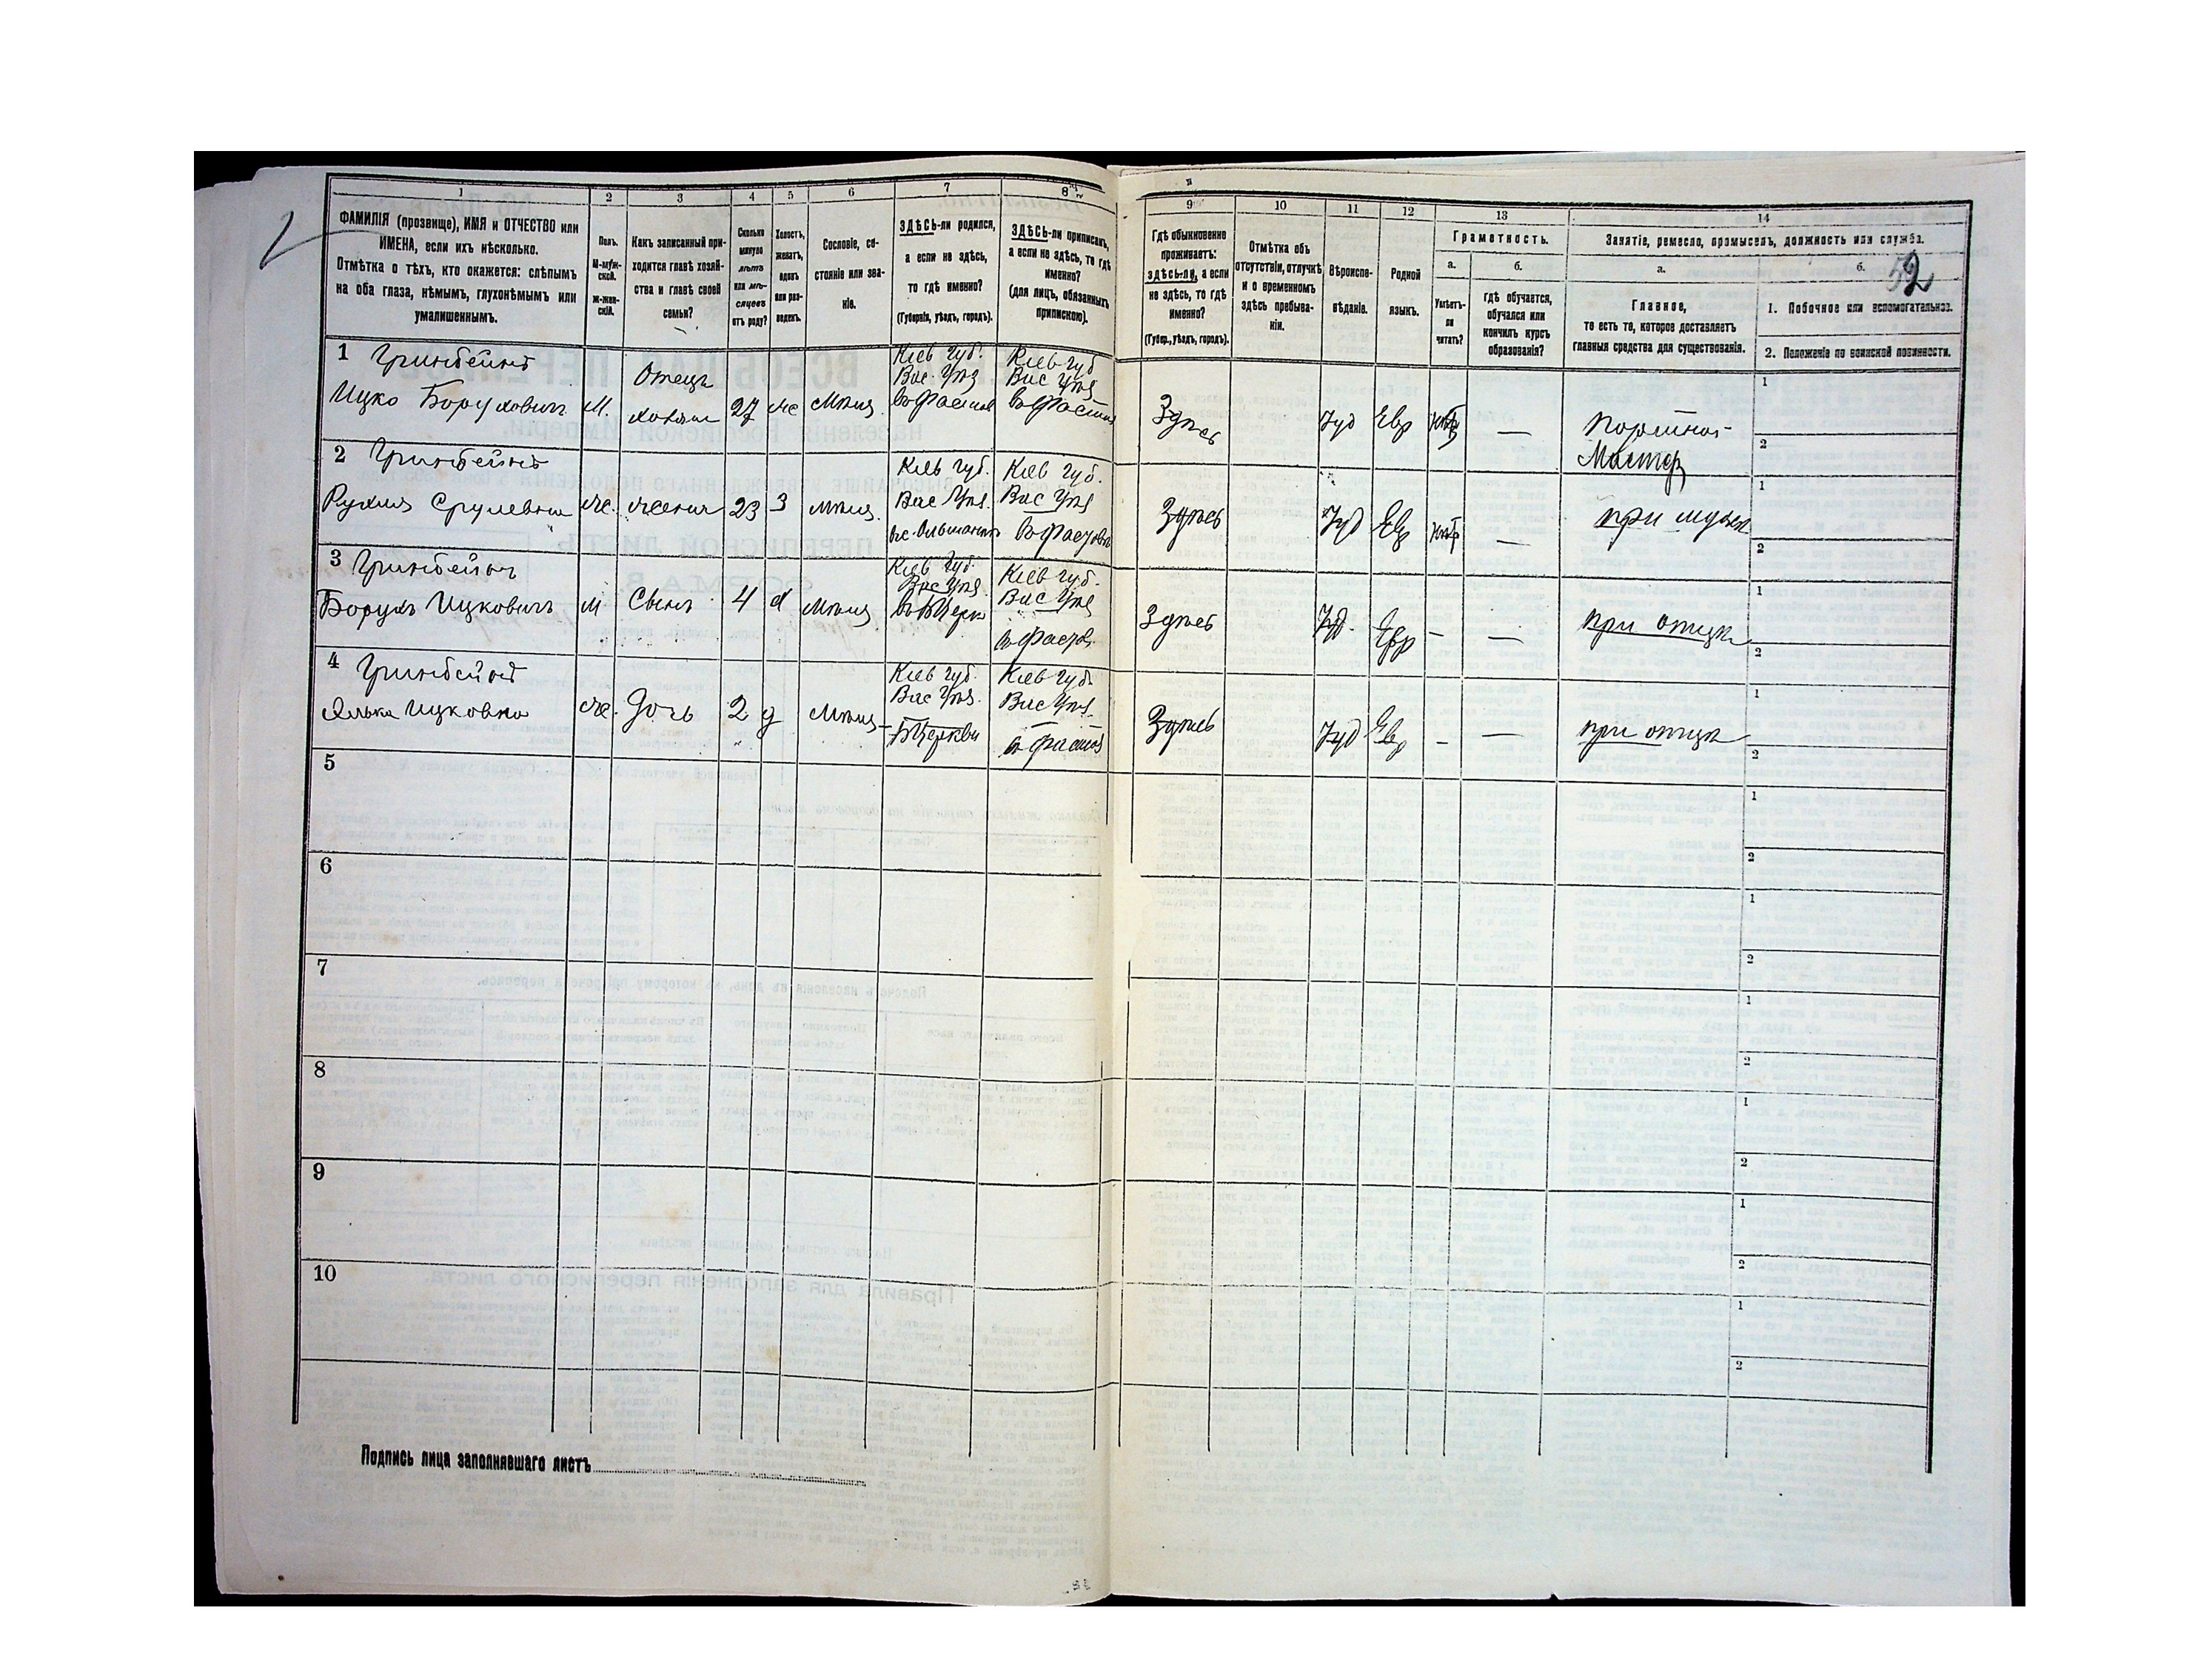 1
2
3
4
5
6
7
8
ФАМИЛІЯ (прозвище), ИМЯ и ОТЧЕСТВО или
ИМЕНА, если ихъ нѣсколько.
Отмѣтка о тѣхъ, кто окажется: слѣпымъ
на оба глаза, нѣмымъ, глухонѣмымъ или
умалишеннымъ.
Полъ.
М-муж-
ской.
Ж-жен-
скій.
Какъ записанный при-
ходится главѣ хозяй-
ства и главѣ своей
семьи?
Сколько
минуло
лѣтъ
или мѣ-
сяцевъ
отъ роду?
Холостъ,
женатъ,
вдовъ
или раз-
веденъ.
Сословіе, со-
стояніе или зва-
ніе.
ЗДѢСЬ-ли родился,
а если не здѣсь,
то гдѣ именно?
(Губернія, уѣздъ, городъ).
ЗДѢСЬ-ли приписанъ,
а если не здѣсь, то гдѣ
именно?
(для лицъ, обязанныхъ
припискою).
9
10
11
12
13
14
Гдѣ обыкновенно
проживаетъ:
здѣсь-ли, а если
не здѣсь, то гдѣ
именно?
(Губер., уѣздъ, городъ).
Отмѣтка объ
отсутствіи, отлучкѣ
и о временномъ
здѣсь пребыва-
ніи.
Вѣроиспо-
вѣданіе.
Родной
языкъ.
Грамотность.
а.
б.
Умѣетъ-
ли
читать?
гдѣ обучается,
обучался или
кончилъ курсъ
образованія?
Занятіе, ремесло, промыселъ, должность или служба.
а.
б.
52
Главное,
то есть то, которое доставляетъ
главныя средства для существованія.
1. Побочное или вспомогательное.
2. Положеніе по воинской повинности.
1 Гринбейнъ
Ицко Борухович
М.
Отецъ
хозяин
27
же
Мѣщ.
Кіев Губ.
Вас. Уѣз
Кіев Губ
Вас Уѣз
Здѣсь
Іуд
Евр
—
Портной
Мастер
1
2
2 Гринбейнъ
Рухля Срулевна
же.
жена
23
З
мѣщ.
Кіев Губ.
Вас Уѣз.
Кіев Губ.
Вас Уѣз
в Фастовѣ
Здѣсь
Іуд
Евр
—
при мужѣ
1
2
3 Гринбейнъ
Борухъ Ицковичъ
М
Сынъ
4
х
Мѣщ
Кіев Губ.
Вас Уѣз.
Кіев Губ.
Вас Уѣз
в Фастов.
Здѣсь
Іуд.
Евр
—
—
при отцѣ
1
2
4 Гринбейнъ
Ицковна
же.
Дочь
2
д
Мѣщ
Кіев Губ.
Вас Уѣз.
БЦеркви
Кіев Губ.
Вас Уѣз.
в Фастов
Здѣсь
Іуд
Евр
—
—
при отцѣ
1
2
5
1
2
6
1
2
7
1
2
8
1
2
9
1
2
10
1
2
Подпись лица заполнявшаго листъ